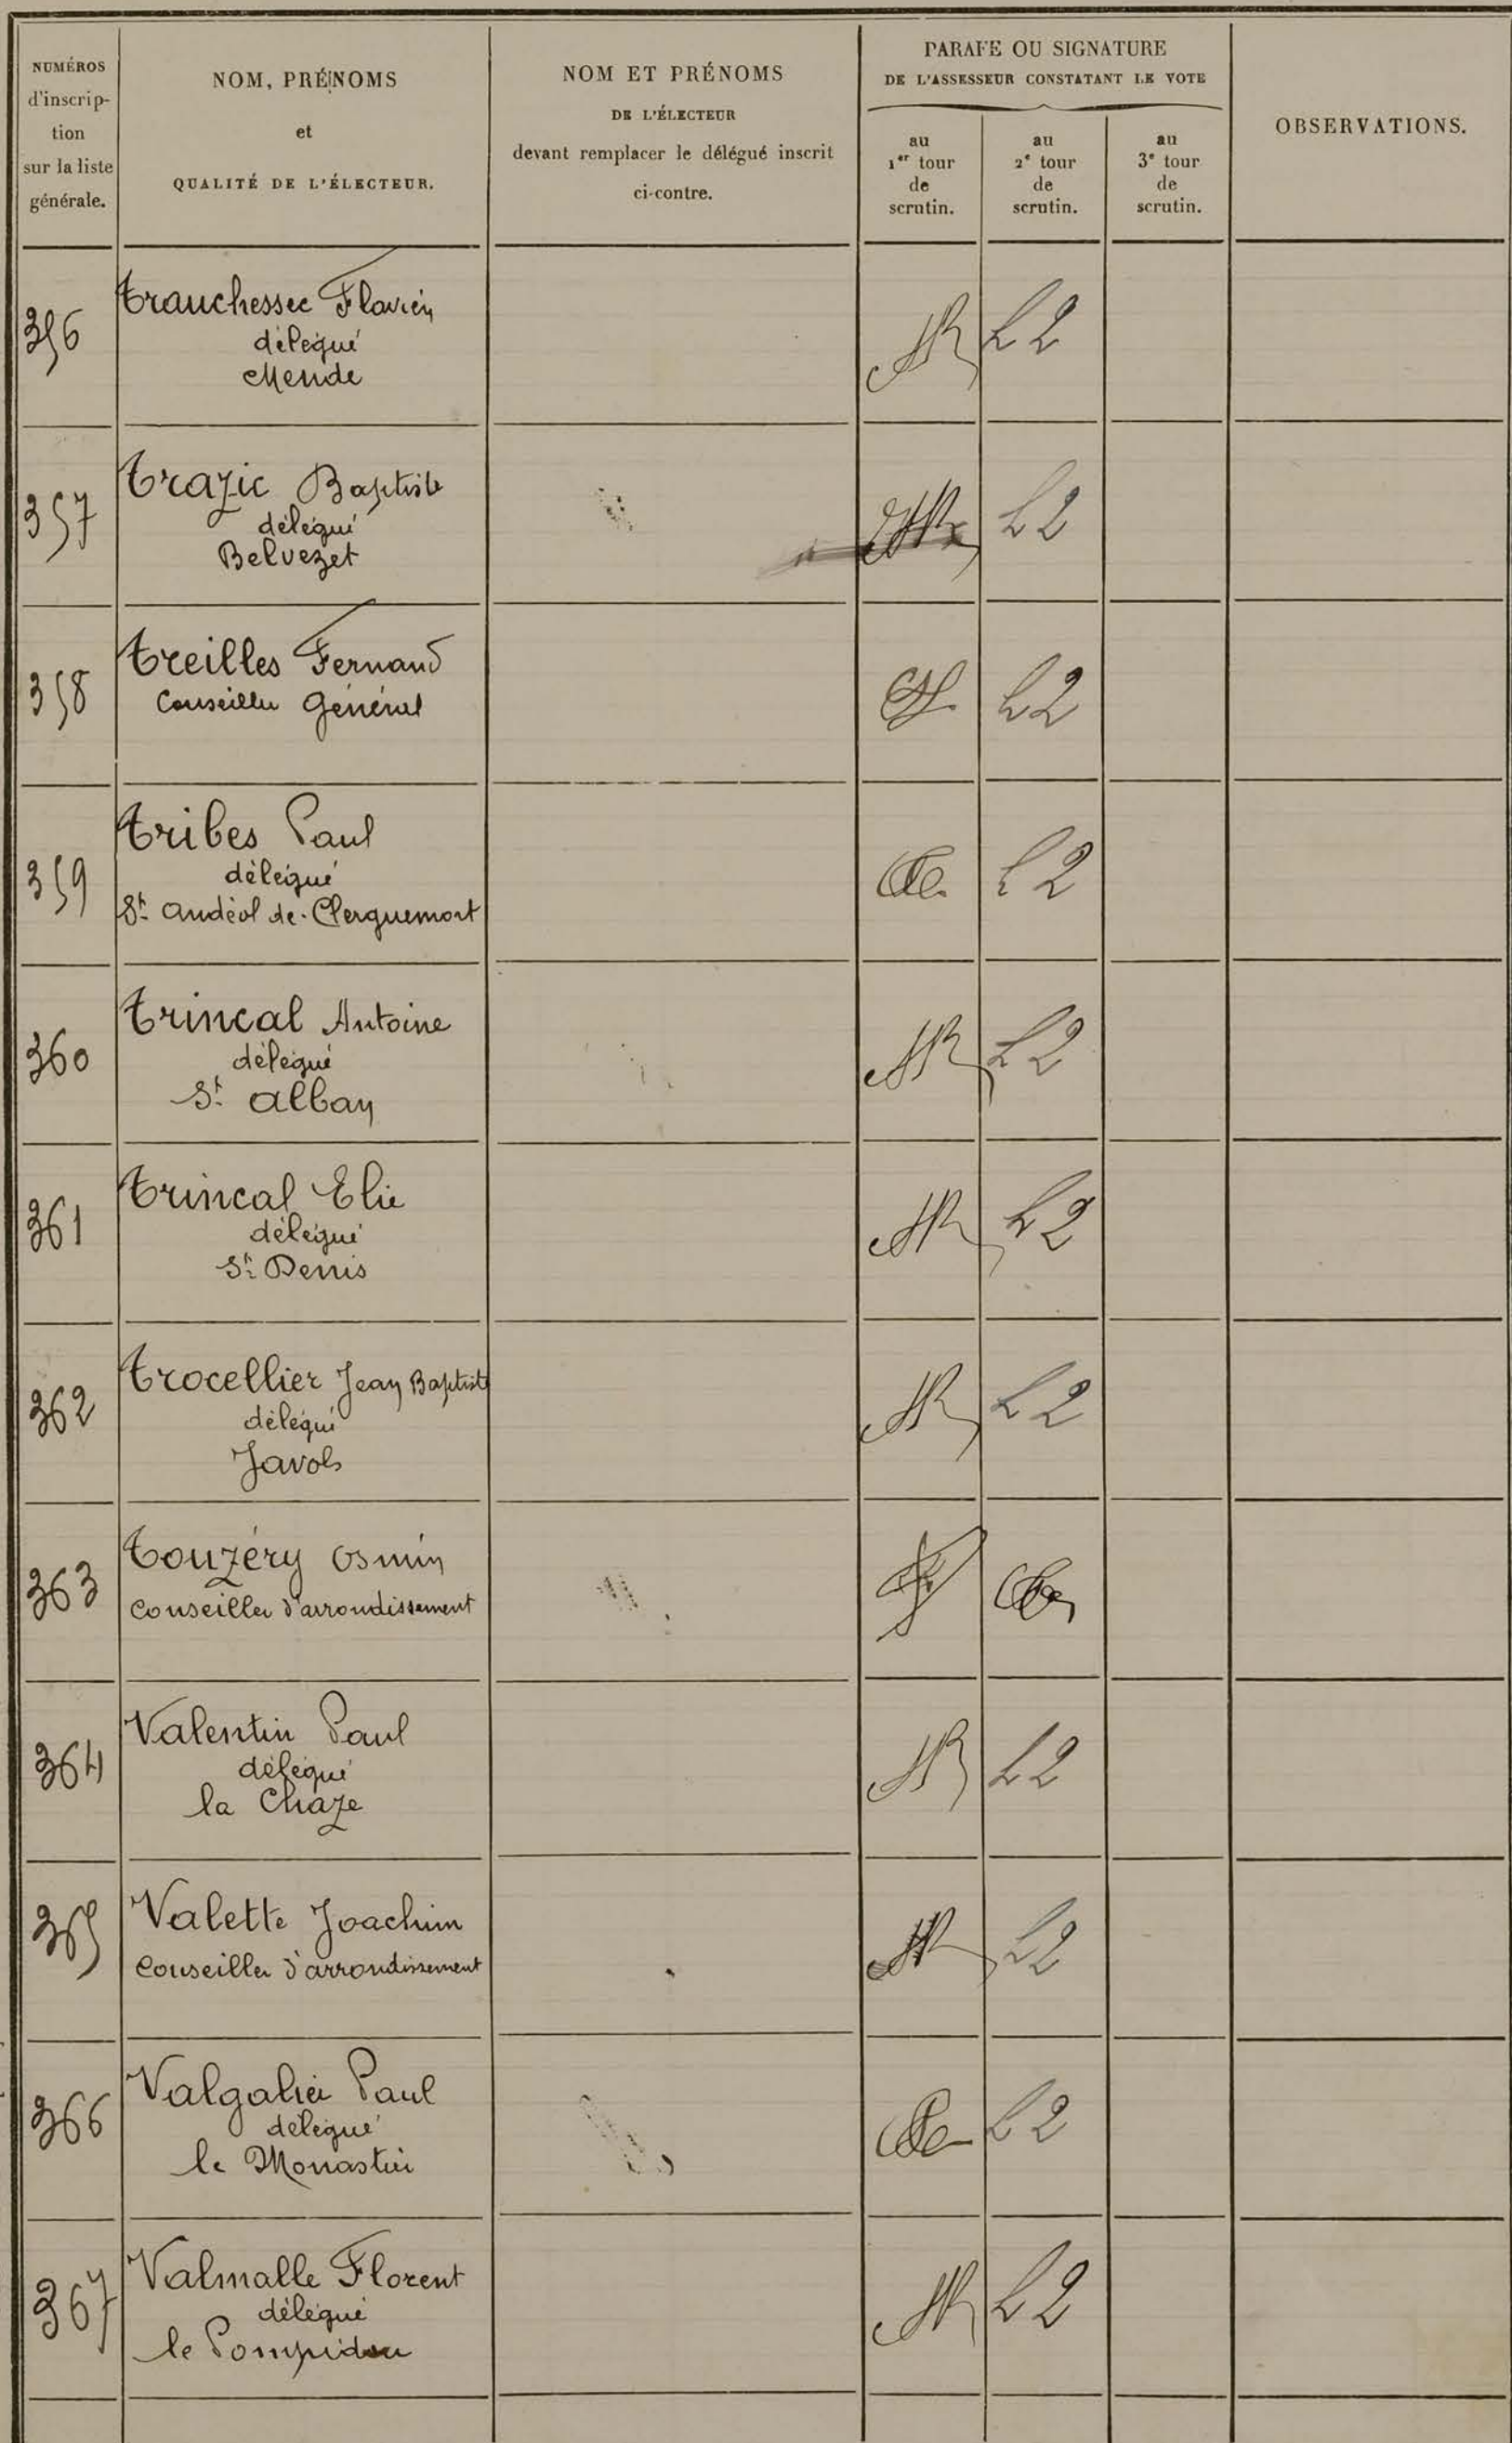 NUMÉROS
d'inscrip-
tion
sur la liste
générale.
NOM, PRÉNOMS
et
QUALITÉ DE L'ÉLECTEUR.
NOM ET PRÉNOMS
DE L'ÉLECTEUR
devant remplacer le délégué inscrit
ci-contre.
PARAFE OU SIGNATURE
DE L'ASSESSEUR CONSTATANT LE VOTE
au
1er tour
de
scrutin.
au
2e tour
de
scrutin.
au
3e tour
de
scrutin.
OBSERVATIONS.
356
Trauchessec Flavien
délégué
Mende
357
Trazic Baptiste
délégué
Belvezet
358
Treilles Fernand
Conseiller Général
359
Tribes Paul
délégué
St Andéol de Clerguemort
360
Trincal Antoine
délégué
St Alban
361
Trincal Elie
délégué
St Denis
362
Trocellier Jean Baptiste
délégué
Javols
363
Touzéry Osmin
Conseiller d'arrondissement
364
Valentin Paul
délégué
la Chaze
365
Valette Joachim
Conseiller d'arrondissement
366
Valgalier Paul
délégué
le Monastier
367
Valmalle Florent
délégué
le Pompidou